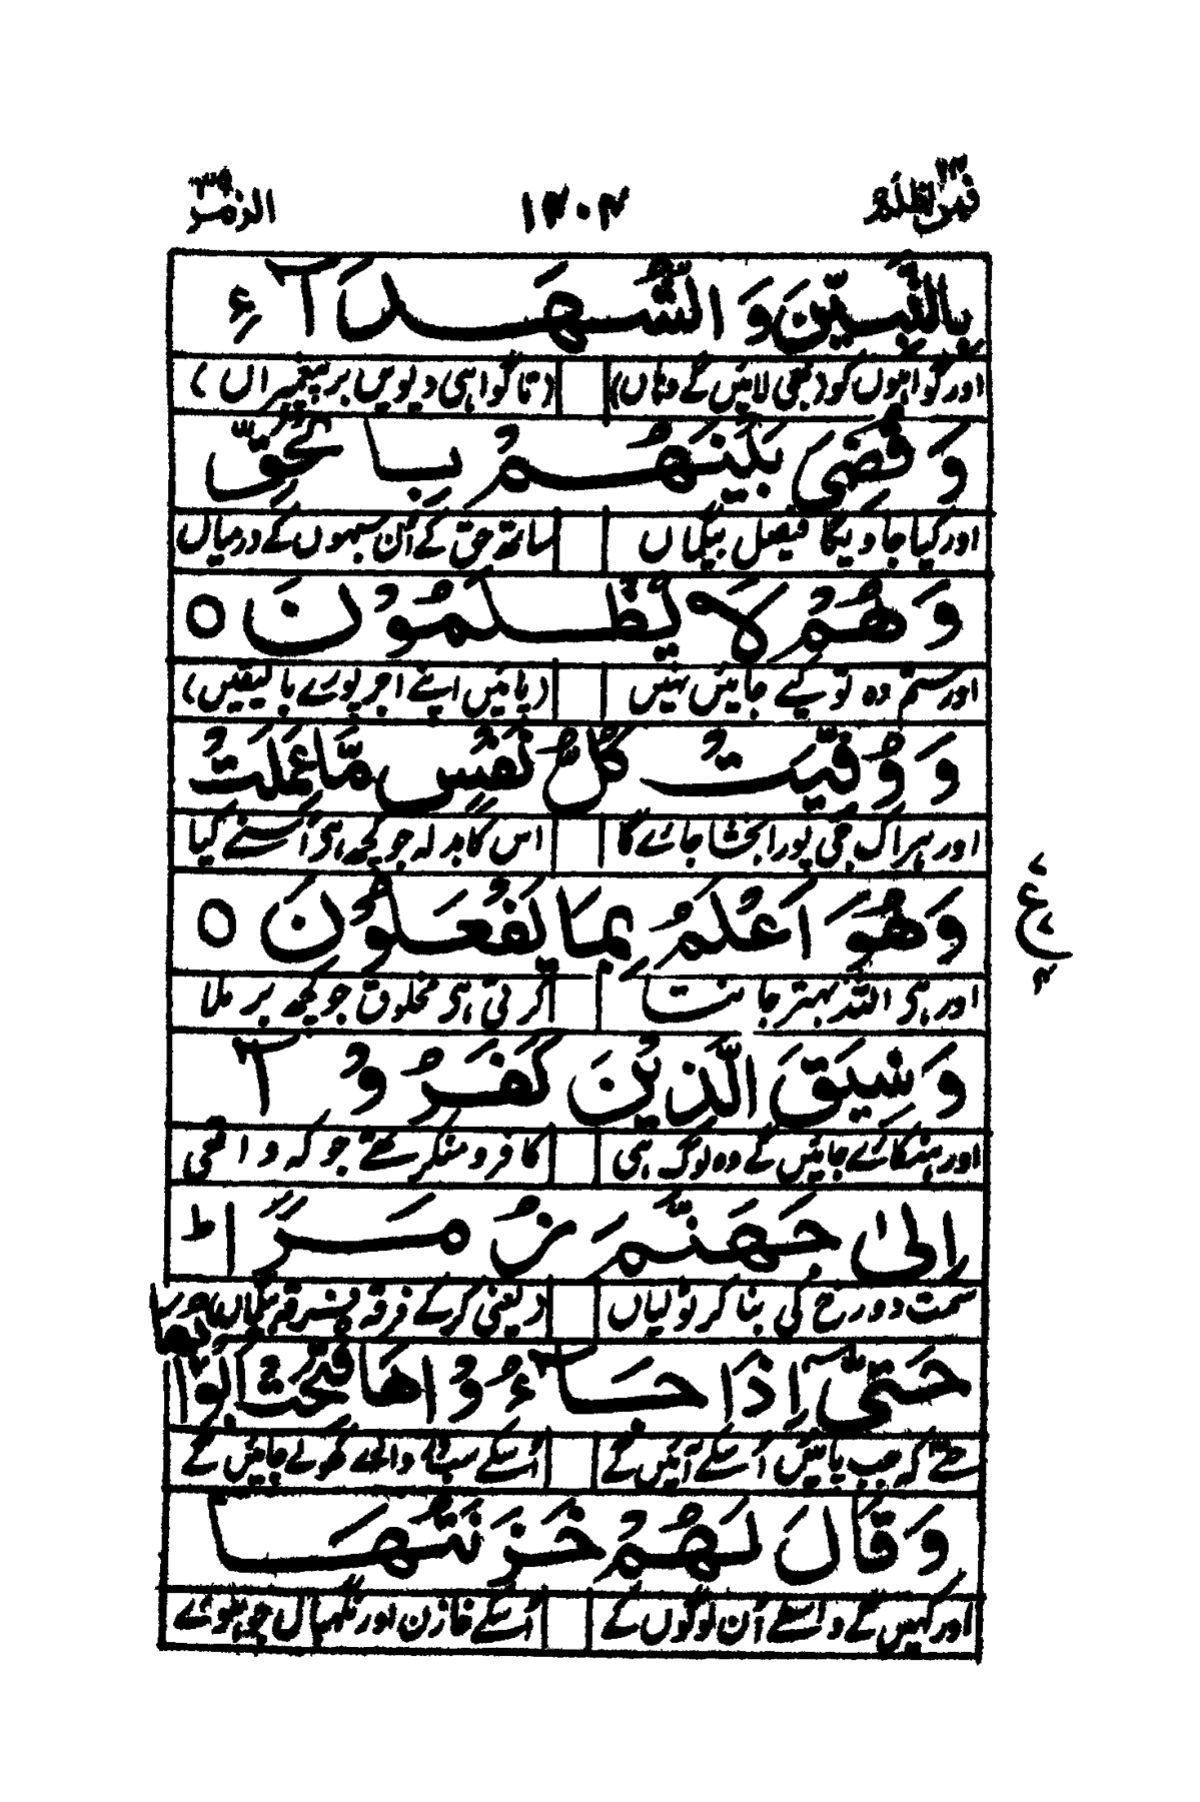 فمن اظلم ۲۴ ۱۲۰۲ الزمر ۳۹
بِالنَّبِيِّنَ وَ الشُّهَدَآءِ
اور گواہوں کو (بھی لائیں گے وہاں) (تا گواہی دیویں بر پیمبراں)
وَ قُضِيَ بَيْنَهُمْ بِالْحَقِّ
اور کیا جاویگا فیصل بیگماں ساتھ حق کے اُن سبھوں کے درمیاں
وَ هُمْ لَا يُظْلَمُوْنَ ○
اور ستم وہ تو کیے جائیں نہیں (پائیں اپنے اجر پورے بالیقیں)
وَ وُفِّيَتْ كُلُّ نَفْسٍ مَّا عَمِلَتْ
اور ہر اک جی پورا بخشا جائے گا اس کا بدلہ جو کچھ ہی اُسنے کیا
وَ هُوَ اَعْلَمُ بِمَا يَفْعَلُوْنَ ○
اور ہی اللہ بہتر جانت کرتی ہی مخلوق جو کچھ بر ملا
وَ سِيْقَ الَّذِيْنَ كَفَرُوْٓ
اور ہنکائے جائیں گے وہ لوگ ہی کافر و منکر تھے جو کہ واقعی
اِلٰى جَهَنَّمَ زُمَرًا ؕ
سمت دوزخ کی بنا کر ٹولیاں (یعنی کرکے فرقہ فرقہ بیگماں)
حَتّٰىٓ اِذَا جَآءُوْهَا فُتِحَتْ اَبْوَا
تھے کہ جب پائیں اُسکے آئیں گے اُسکے سب والے کھولے جائیں گے
وَ قَالَ لَهُمْ خَزَنَتُهَا
اور کہیں گے واسطے اُن لوگوں کے اُسکے خازن اور نگہباں جو ہوئے
ع